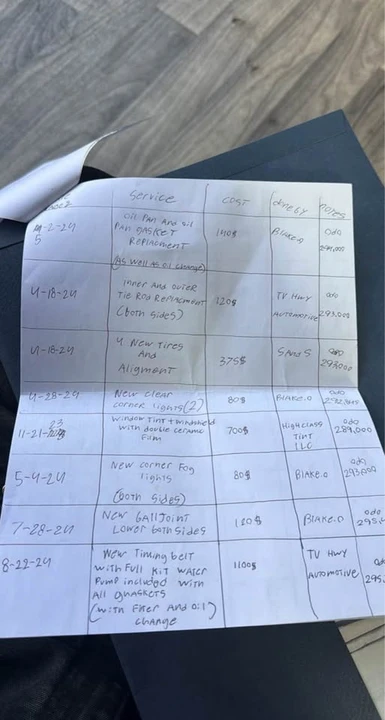 Service COST doneby notes
-2-24 oil Pan And oil Pan gasket Replacment 140$ Blake.o odo
(As well As oil change)
4-18-24 inner And outer Tie Rod Replacment (both sides) 120$ TV Hwy Automotive odo 293,000
4-18-24 4 New Tires And Aligment 375$ SAndS odo 293,000
4-28-24 New clear corner lights (2) 80$ Blake.o odo
11-21-23 window Tint + windshield with double ceramic Film 700$ High class Tint LLC odo 289,000
5-4-24 New corner Fog lights (both sides) 80$ Blake.o odo 293,000
7-28-24 New ball Joint Lower both sides 120$ Blake.o odo 295,
8-22-24 New Timing belt with Full Kit water Pump included with All gaskets (with Filter And oil) change 1100$ TV Hwy Automotive odo 295,